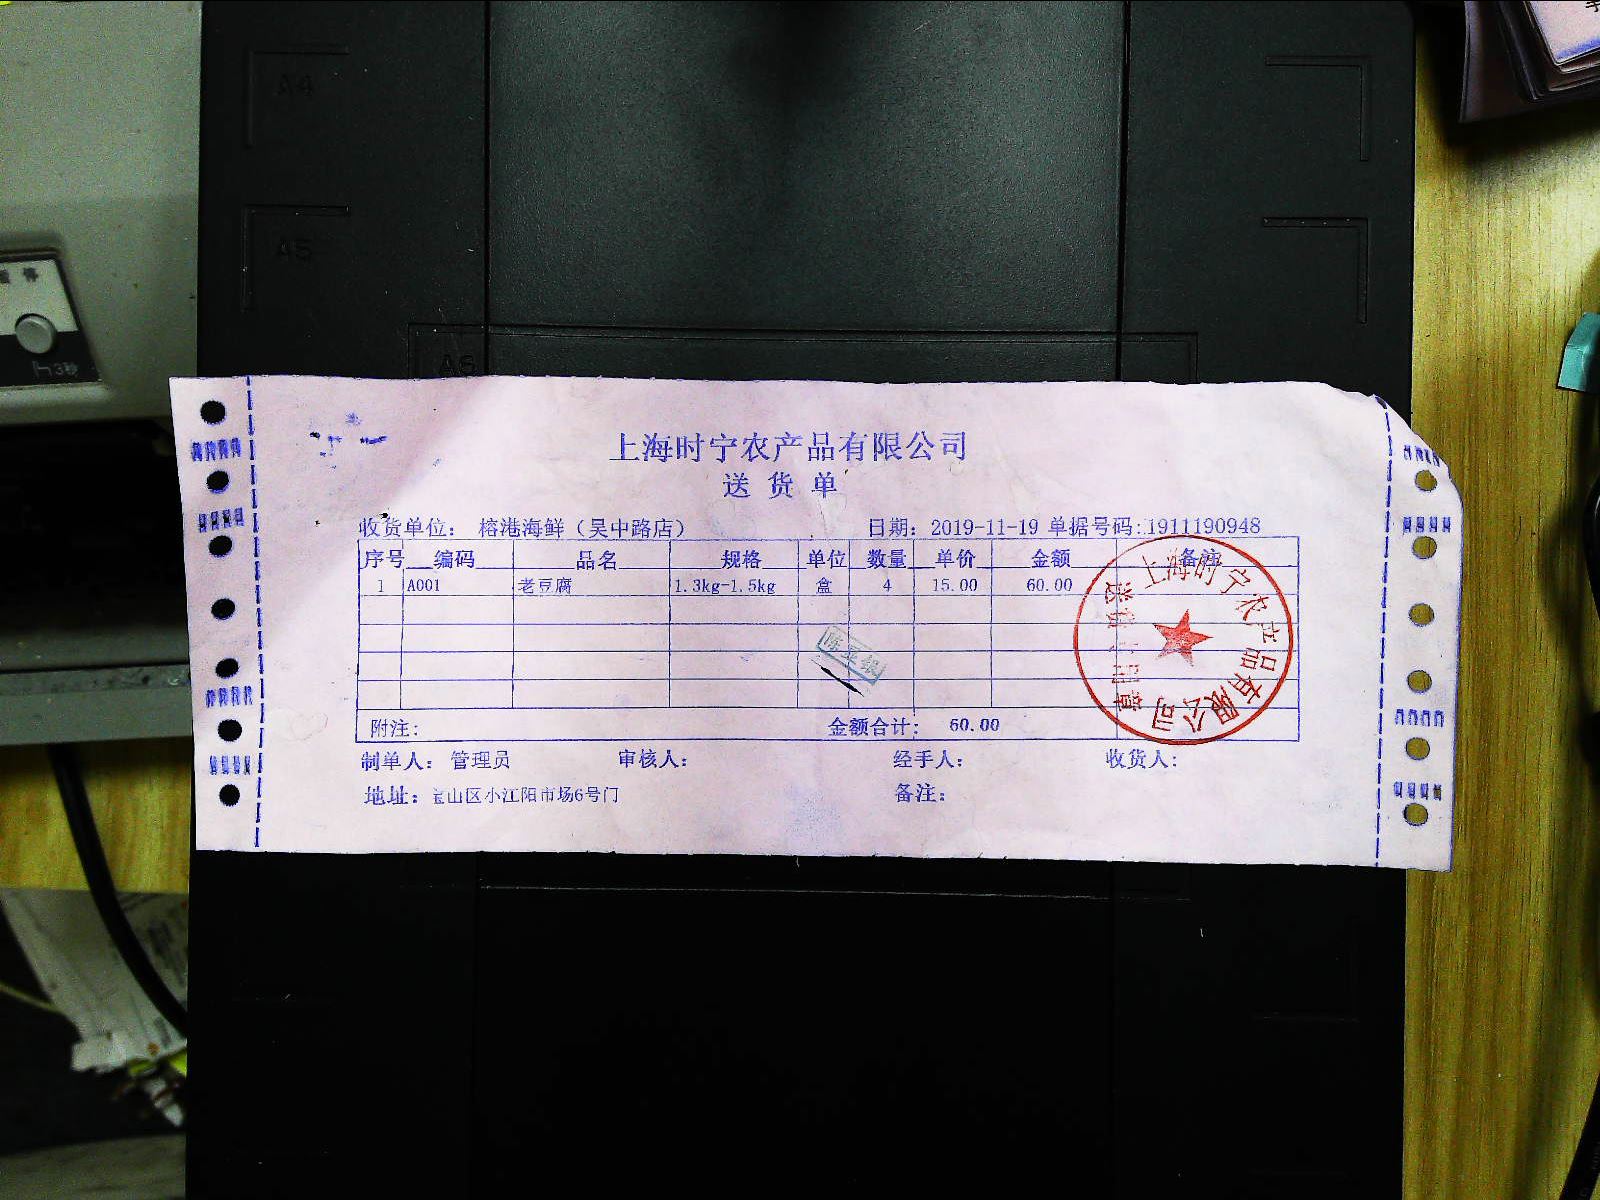 A4
A5
A6
3秒
上海时宁农产品有限公司
送货单
收货单位: 榕港海鲜（吴中路店） 日期: 2019-11-19 单据号码:1911190948
序号 编码 品名 规格 单位 数量 单价 金额 备注
1 A001 老豆腐 1.3kg-1.5kg 盒 4 15.00 60.00
附注: 金额合计: 60.00
制单人: 管理员 审核人: 经手人: 收货人:
地址: 宝山区小江阳市场6号门 备注:
上海时宁农产品有限公司